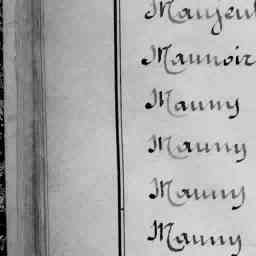 Maunoir
Mauny
Mauny
Mauny
Mauny